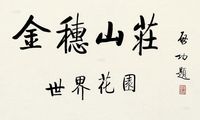 金穗山莊
世界花園
啟功題